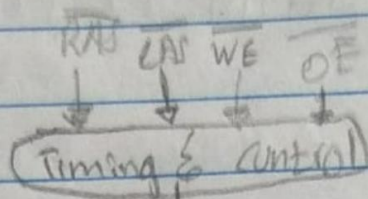 R̅A̅S̅ C̅A̅S̅ W̅E̅ O̅E̅
Timing & Control